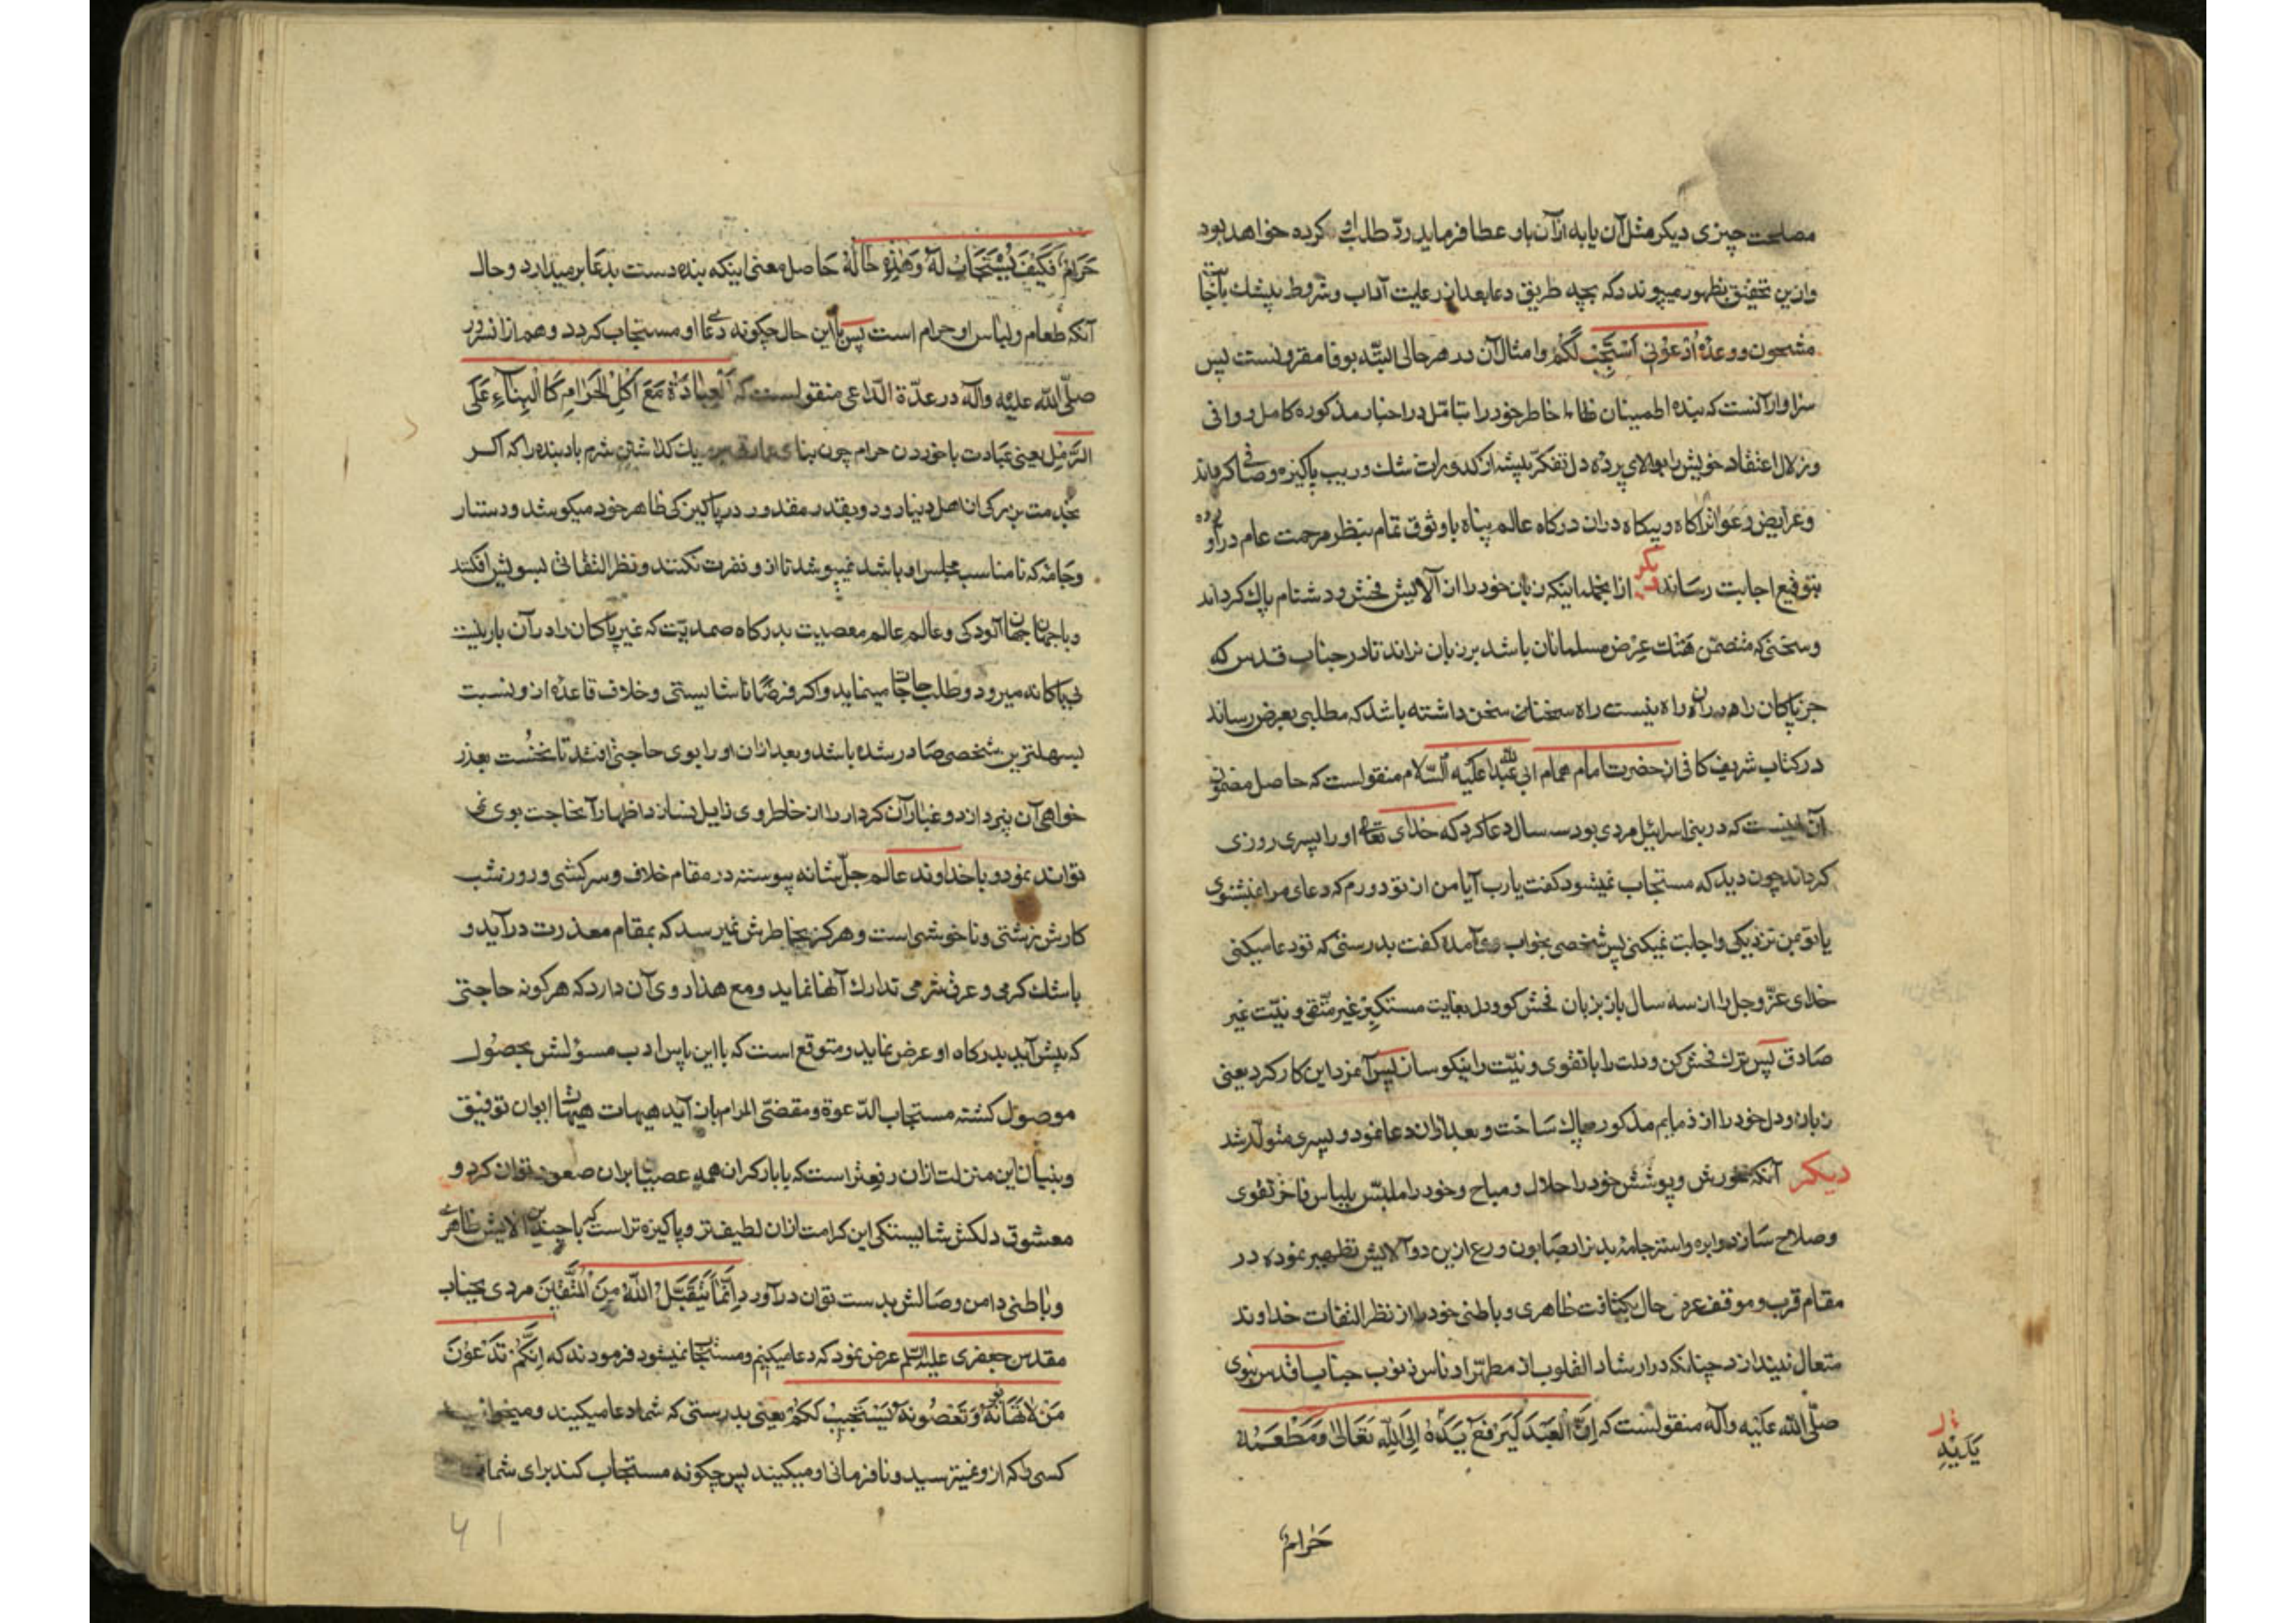 مصلحت چیزی دیگر مثل آن یا به از آن باو عطا فرماید ردّ طلب او کرده خواهد بود
وازین تحقیق بظهور میپیوندد که بچه طریق دعا بعد از رعایت آداب و شروط بیشک باجابت
مشحون و وعدهٔ اُدْعُونی اَسْتَجِبْ لَکُمْ وامثال آن در هر حالی البتّه بوفا مقرونست پس
سزاوار آنست که بنده اطمینان خاطر خود را بتامّل در اخبار مذکوره کامل و وافی
وزلال اعتقاد خویش را بپالای پرده دل تفکّر پیشه از کدورات شک وریب پاکیزه وصافی گرداند
وعرایض دعوات را گاه و بیگاه دران درگاه عالم پناه با وثوق تمام بنظر مرحمت عام درآورده
بتوقیع اجابت رساند دیگر ازانجمله اینکه زبان خود را از آلایش فحش و دشنام پاک گرداند
وسخنی که متضمّن هتک عِرْض مسلمانان باشد بر زبان نراند تا در جناب قدس که
جز پاکان را دران راه نیست راه سخنان سخن داشته باشد که مطلبی بعرض رساند
در کتاب شریف کافی از حضرت امام همام ابی عبدالله علیه السّلام منقولست که حاصل مضمون
آن اینست که در بنی اسرائیل مردی بود سه سال دعا کرد که خدای تعالی او را پسری روزی
گرداند چون دید که مستجاب نمیشود گفت یارب آیا من از تو دورم که دعای مرا نمیشنوی
یا تو بمن نزدیکی واجابت نمیکنی پس شخصی بخواب وی آمده گفت بدرستی که تو دعا میکنی
خدای عزّ وجل را از سه سال باز بزبان فحش گو و دل بغایت مستکبرْ غیر متّقی و نیّت غیر
صادق پس ترک فحش کن ودلت را باتقوی و نیّت را نیکو سان پس آنمرد این کار کرد یعنی
زبان ودل خود را از ذمایم مذکوره پاک ساخت وبعد ازان دعا نمود و پسری متولّد شد
دیگر آنکه خورش وپوشش خود را حلال و مباح وخود را ملبّس بلباس فاخر تقوی
وصلاح سازد وابره واستر جامهٔ بدنرا بصابون ورع ازین دو آلایش تطهیر نموده در
مقام قرب وموقف عرض حال بکثافت ظاهری وباطنی خود را از نظر التفات خداوند
متعال نیندازد چنانکه در ارشاد القلوب از مطهّر ادناس ذنوب جناب اقدس نبوی
صلّی الله علیه وآله منقولست که اِنَّ الْعَبْدَ لَیَرْفَعُ یَدَهُ اِلَی اللّٰهِ تَعَالیٰ وَمَطْعَمُهُ
یَدَیْهِ
حَرامٌ
حَرامٌ فَکَیْفَ یُسْتَجَابُ لَهُ وَهٰذِهِ حَالُهُ حاصل معنی اینکه بنده دست بدعا برمیدارد وحال
آنکه طعام ولباس او حرام است پس بااین حال چگونه دعای او مستجاب گردد وهم ازانسرور
صلّی الله علیه وآله در عدّة الدّاعی منقولست که اَلْعِبادَةُ مَعَ اَکْلِ الْحَرامِ کَالْبِناءِ عَلَی
الرَّمْلِ یعنی عبادت باخوردن حرام چون بنای بریک گذاشتن شرم باد بنده را که اگر
بخدمت بزرگی از اهل دنیا رود وبقدر مقدور در پاکیزگی ظاهر خود میکوشد ودستار
وجامهٔ که نامناسب مجلس او باشد نمیپوشد تا ازو نفرت نکنند ونظر التفاتی بسویش افکنند
وباجهان جهان آلودگی وعالم عالم معصیت بدرگاه صمدیّت که غیر پاکان را در آن بار نیست
بی‌باکانه میرود وطلب حاجات مینماید واگر فرضًا ناشایستی وخلاف قاعدهٔ ازو نسبت
بسهلترین شخصی صادر شده باشد وبعد ازان او را بوی حاجتی افتد تا نخست بعذر
خواهی آن نپردازد وغبار آن کردار را از خاطر وی زایل نسازد اظهار آنحاجت بوی نمی
تواند نمود وباخداوند عالم جلّ شانه پیوسته در مقام خلاف وسرکشی وروز وشب
کارش زشتی وناخوشی است وهرگز بخاطرش نمیرسد که بمقام معذرت درآید و
باشک گرمی وعرق شرمی تدارک آنها نماید ومع هذا روی آن دارد که هرگونه حاجتی
که پیش آید بدرگاه او عرض نماید ومتوقع است که بااین پاس ادب مسؤلش بحصول
موصول گشته مستجاب الدّعوة ومقضّی المرام بازآید هیهات هیهات ایوان توفیق
وبنیان این منزلت ازان رفیعتر است که بابار گران همه عصیان بران صعود توان کرد و
معشوق دلکش شایستگی این کرامت ازان لطیف تر وپاکیزه تر است که باچندین آلایش ظاهری
وباطنی دامن وصالش بدست توان درآورد اِنَّمَا یَتَقَبَّلُ اللّٰهُ مِنَ الْمُتَّقِینَ مردی بجناب
مقدس جعفری علیه السّلم عرض نمود که دعا میکنیم ومستجاب نمیشود فرمودند که اِنَّکُمْ تَدْعُونَ
مَنْ لاتَهَابُونَهُ وَتَعْصُونَهُ فَکَیْفَ یَسْتَجِیبُ لَکُمْ یعنی بدرستی که شما دعا میکنید ومیخوانید
کسی را که ازو نمیترسید ونافرمانی او میکنید پس چگونه مستجاب کند برای شما